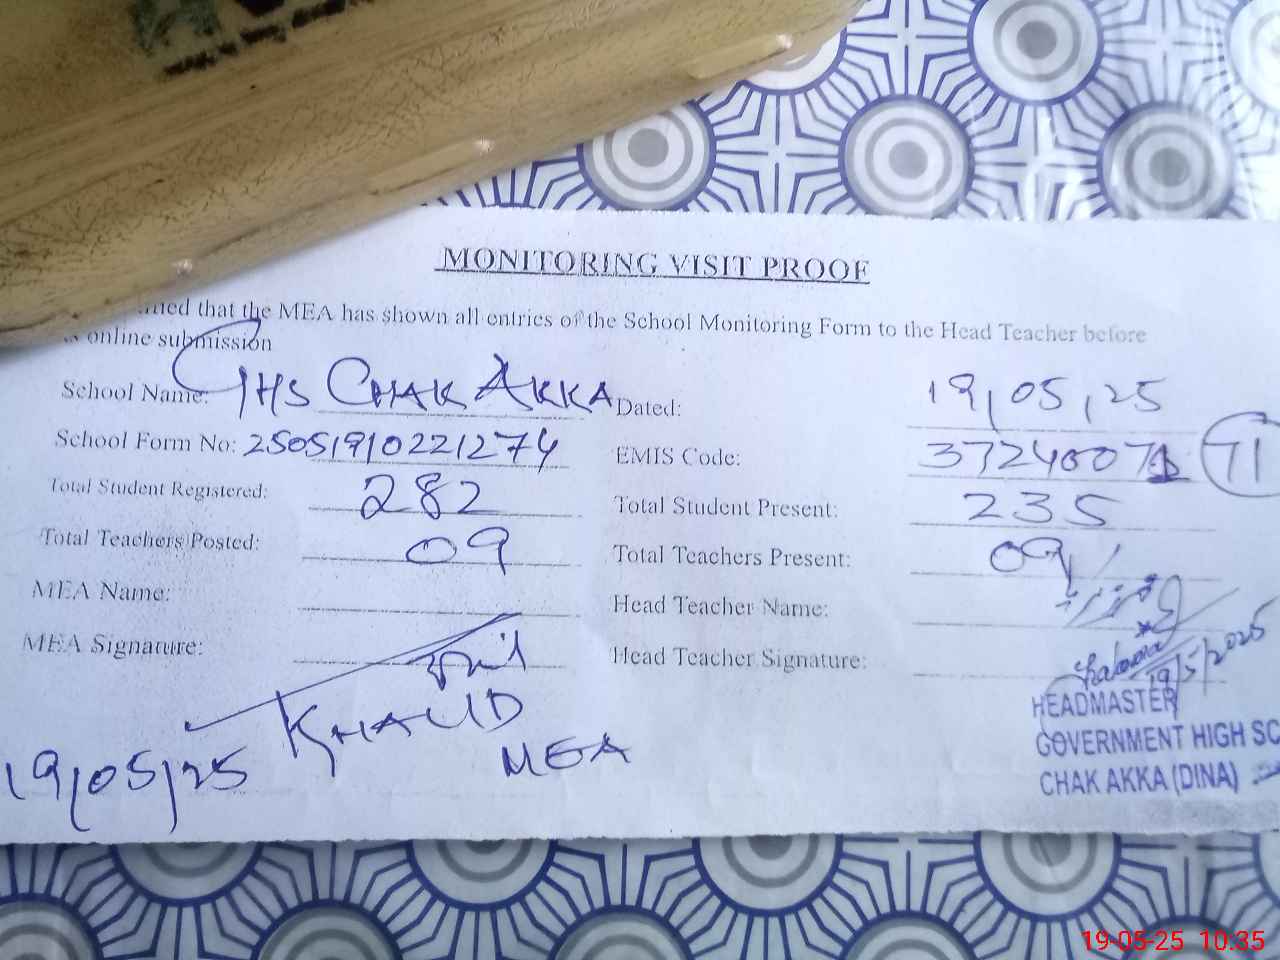 MONITORING VISIT PROOF
that the MEA has shown all entries of the School Monitoring Form to the Head Teacher before
online submission
School Name: GHS CHAK AKKA Dated: 19/05/25
School Form No: 250519102212​74 EMIS Code: 37240071 71
Total Student Registered: 282 Total Student Present: 235
Total Teachers Posted: 09 Total Teachers Present: 09
MEA Name: Head Teacher Name:
MEA Signature: Head Teacher Signature:
19/5/2025
KHALID
MEA
19/05/25
HEADMASTER
GOVERNMENT HIGH SC
CHAK AKKA (DINA)
19-05-25 10:35